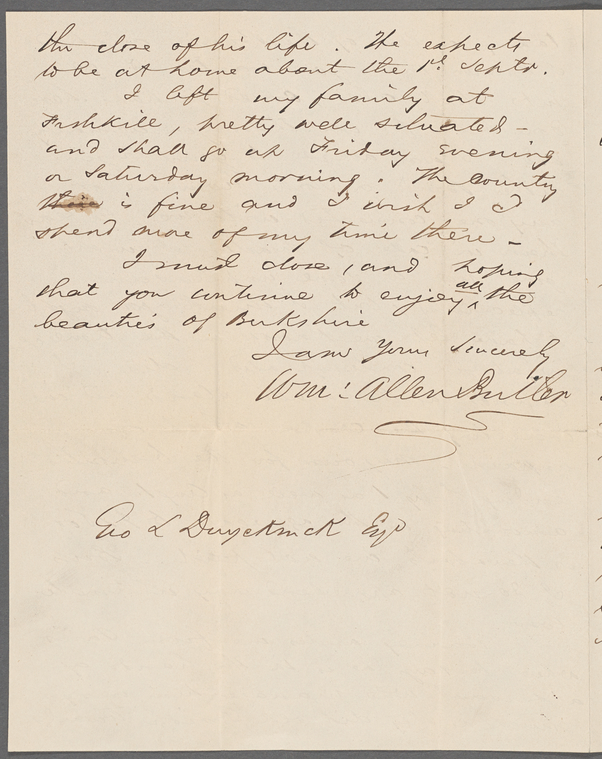 the close of his life. He expects
to be at home about the 1st Septr.
I left my family at
Fishkill, pretty well situated -
and shall go up Friday evening
or Saturday morning. The Country
is fine and I wish I I
spend more of my time there -
I must close, and hoping
that you continue to enjoy all the
beauties of Berkshire
I am Yours Sincerely
Wm: Allen Butler
Geo L Duyckinck Esqr